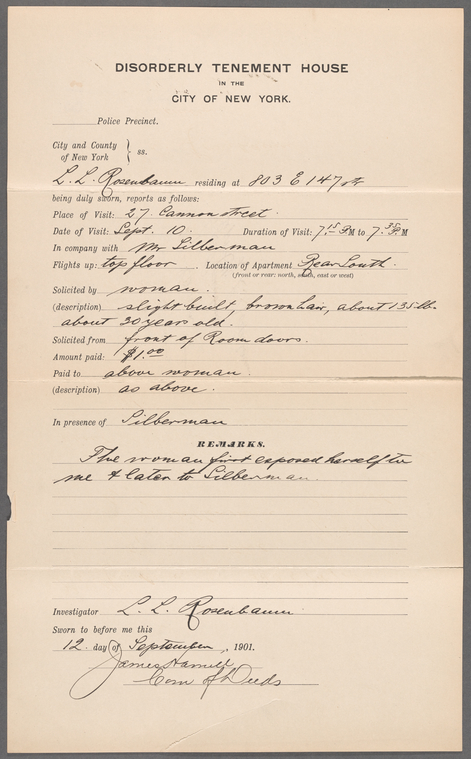 DISORDERLY TENEMENT HOUSE
IN THE
CITY OF NEW YORK.
Police Precinct.
City and County
of New York } ss.
L. L. Rosenbaum residing at 803 E 147 th
being duly sworn, reports as follows:
Place of Visit: 27 Cannon Street.
Date of Visit: Sept. 10. Duration of Visit: 7 15 P M to 7 35 P. M
In company with Mr Silberman
Flights up: top floor. Location of Apartment Rear South.
(front or rear: north, south, east or west)
Solicited by woman.
(description) slight built, brown hair, about 135 lb.
about 30 year old.
Solicited from front of Room doors.
Amount paid: $1.00
Paid to above woman.
(description) as above.
In presence of Silberman
REMARKS.
The woman first exposed herself to
me & later to Silberman.
Investigator L. L. Rosenbaum
Sworn to before me this
12 day of September, 1901.
James
Com of Deeds